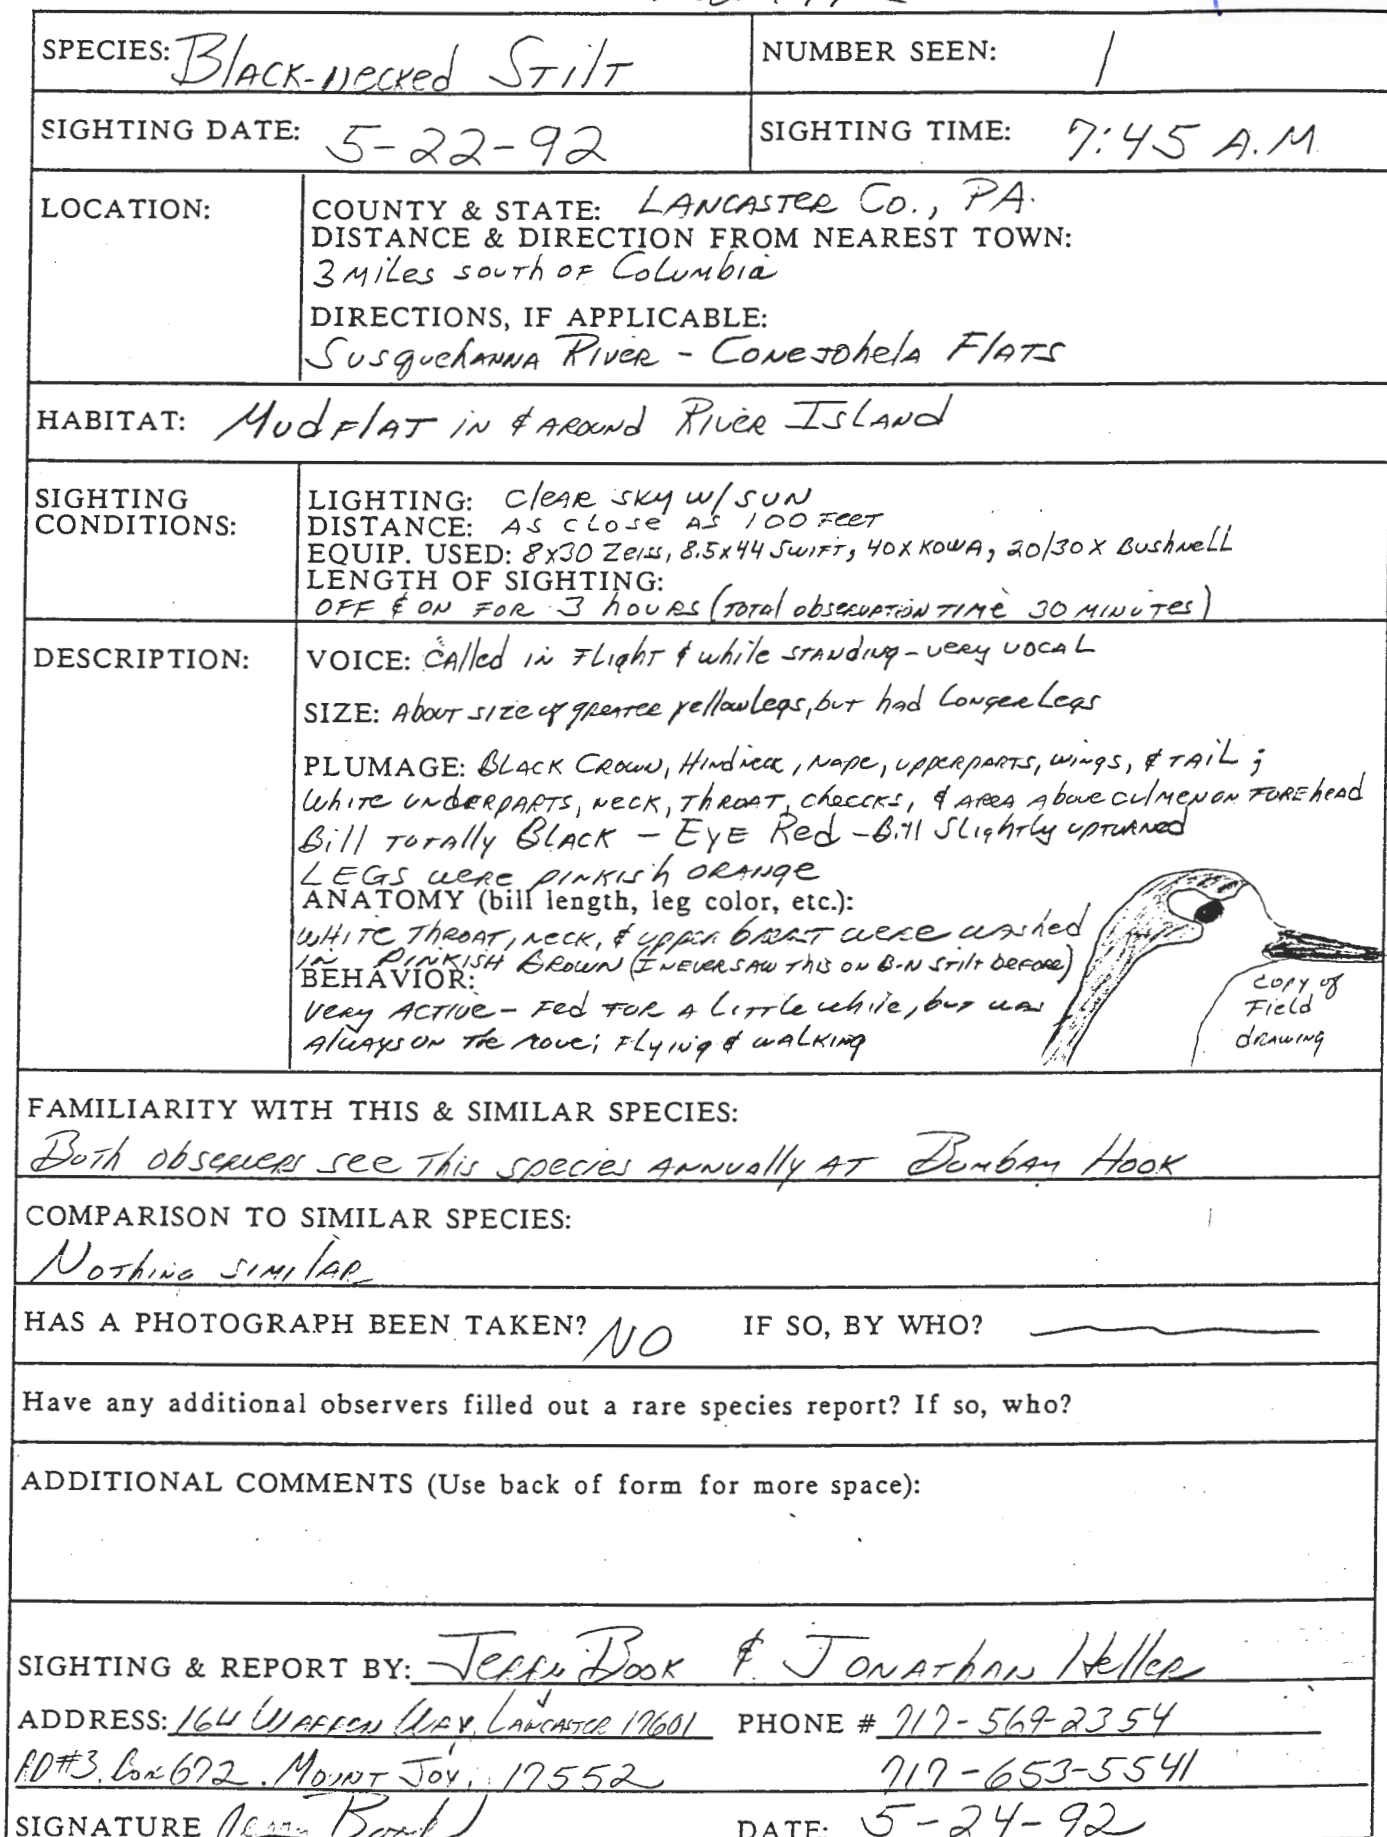 SPECIES: Black-necked Stilt
NUMBER SEEN: 1
SIGHTING DATE: 5-22-92
SIGHTING TIME: 7:45 A.M.
LOCATION:
COUNTY & STATE: LANCASTER Co., PA.
DISTANCE & DIRECTION FROM NEAREST TOWN:
3 miles south of Columbia
DIRECTIONS, IF APPLICABLE:
Susquehanna River - Conejohela Flats
HABITAT: Mudflat in & around River Island
SIGHTING CONDITIONS:
LIGHTING: clear sky w/ sun
DISTANCE: As close as 100 feet
EQUIP. USED: 8x30 Zeiss, 8.5x44 Swift, 40x Kowa, 20/30x Bushnell
LENGTH OF SIGHTING:
OFF & ON FOR 3 hours (total observation time 30 minutes)
DESCRIPTION:
VOICE: Called in flight & while standing - very vocal
SIZE: About size of greater yellowlegs, but had longer legs
PLUMAGE: Black Crown, Hindneck, nape, upperparts, wings, & tail;
white underparts, neck, throat, cheecks, & area above culmen on forehead
Bill totally Black - Eye Red - Bill slightly upturned
LEGS were pinkish orange
ANATOMY (bill length, leg color, etc.):
White throat, neck, & upper were washed
in pinkish brown (I never saw this on B-N Stilt before)
BEHAVIOR:
very active - Fed for a little while, but was
always on the move; flying & walking
copy of
Field
drawing
FAMILIARITY WITH THIS & SIMILAR SPECIES:
Both observers see this species annually at Bombay Hook
COMPARISON TO SIMILAR SPECIES:
Nothing similar
HAS A PHOTOGRAPH BEEN TAKEN? NO
IF SO, BY WHO?
Have any additional observers filled out a rare species report? If so, who?
ADDITIONAL COMMENTS (Use back of form for more space):
SIGHTING & REPORT BY: Jerry Book & Jonathan Heller
ADDRESS: 164 Way, Lancaster 17601
PHONE # 717-569-2354
RD#3, Box 672, Mount Joy, 17552
717-653-5541
SIGNATURE Jerry Book
DATE: 5-24-92